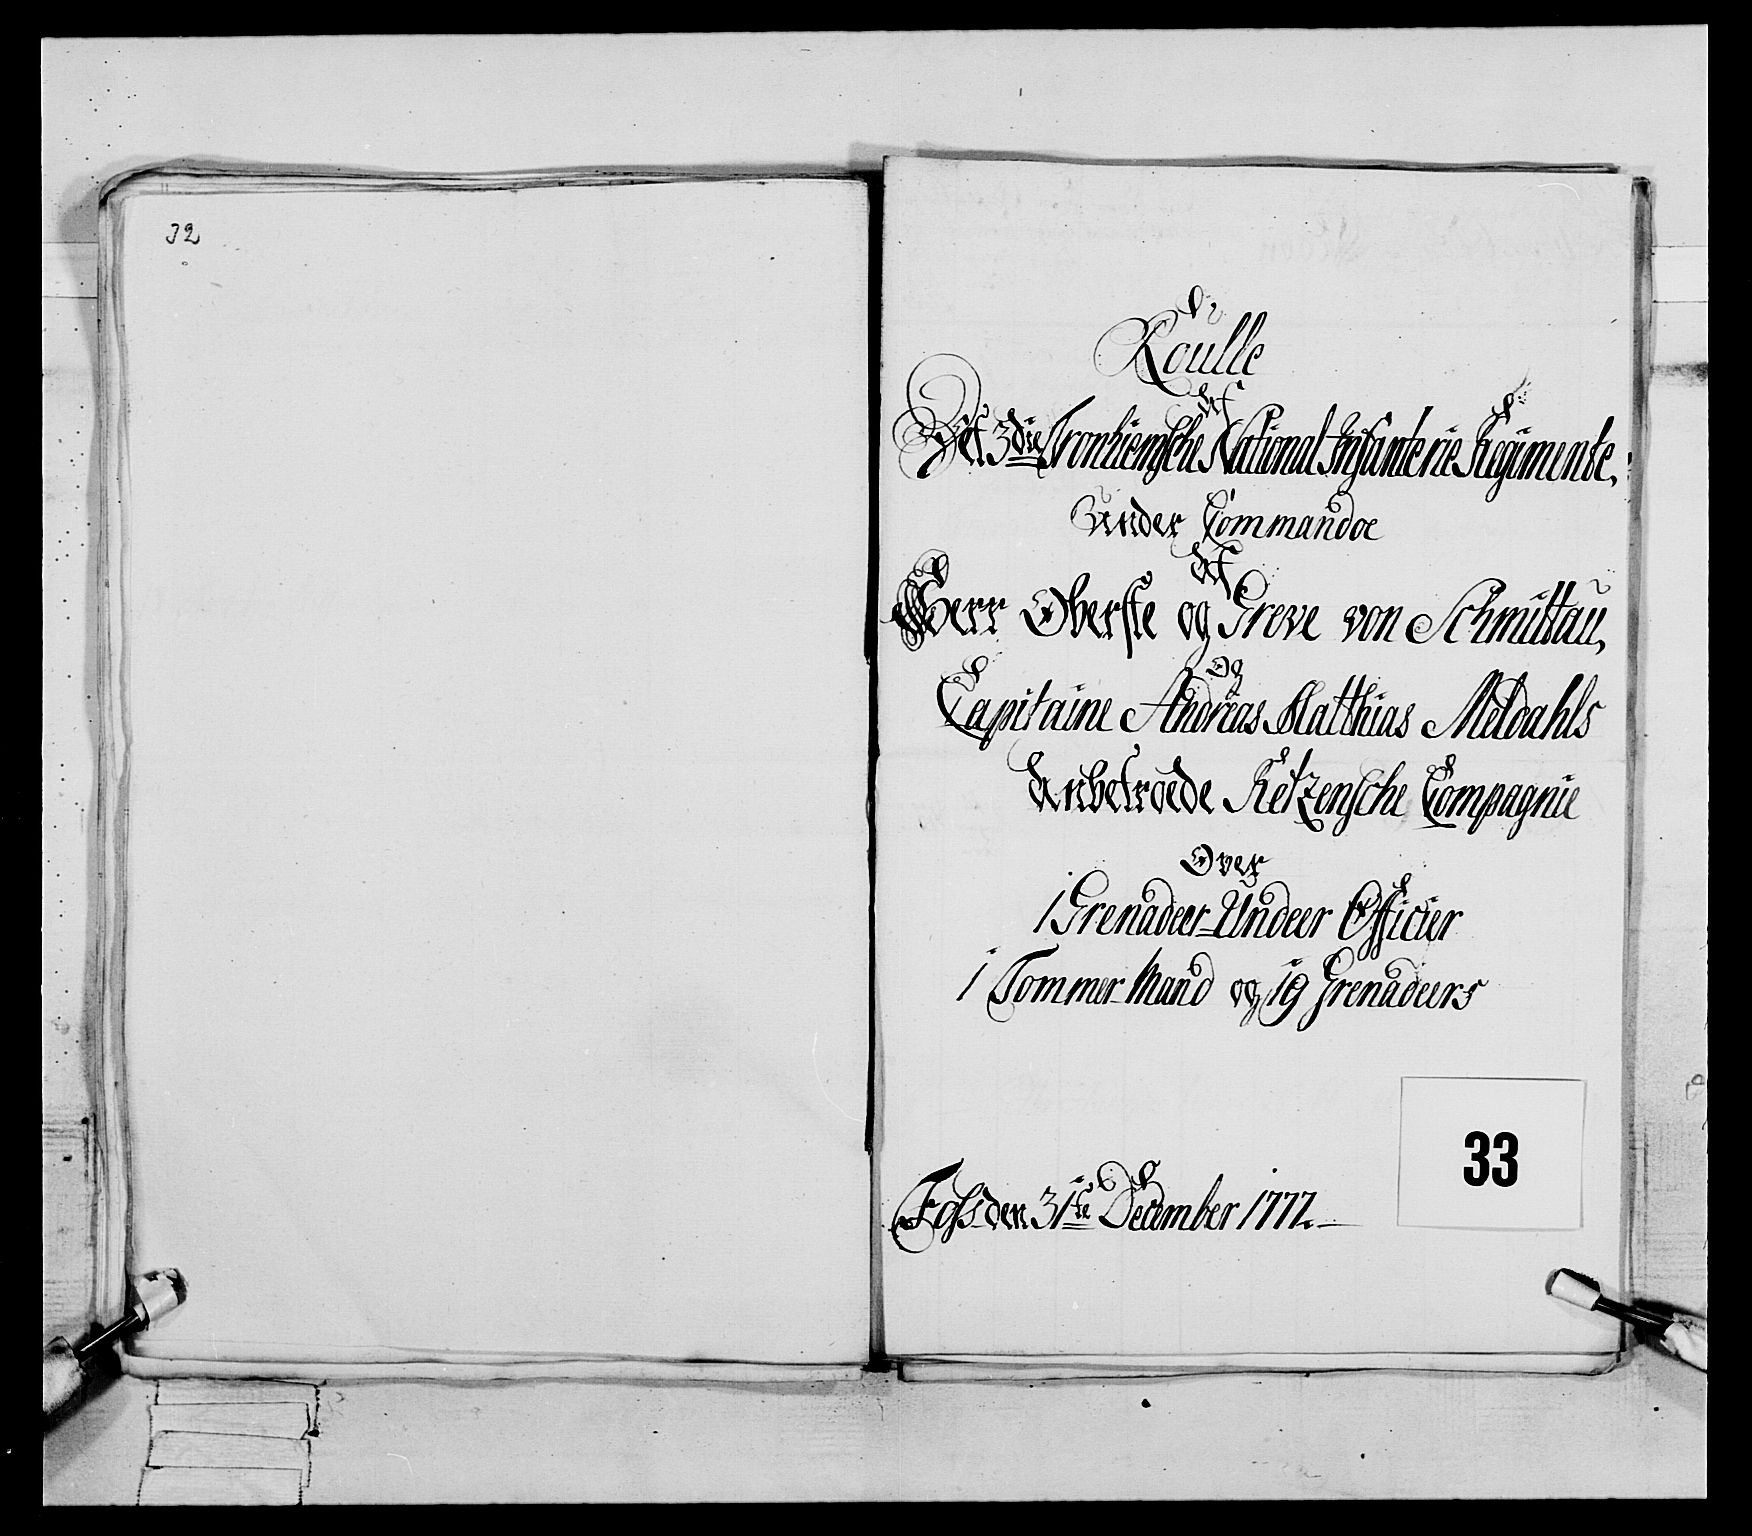 32
Roulle
af
Det 3die Tronhiemsche National Infanterie Regimente,
Under Commandoe
af
Herr Oberste og Greve von Schmittau,
og
Capitaine Andreas Matthias Meldahls
Anbetroede Ketzensche Compagnie
Over
1 Grenadeer-Undeer Officier
1 Tommer-Mand og 19 Grenadeers
33
Foss den 31te December 1777.